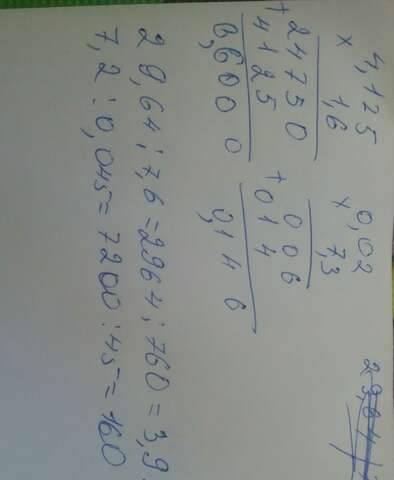 4,125
× 1,6
24750
+ 4125
6,6000
0,02
× 7,3
006
+ 014
0,146
29,64 : 7,6 = 2964 : 760 = 3,9
7,2 : 0,045 = 7200 : 45 = 160